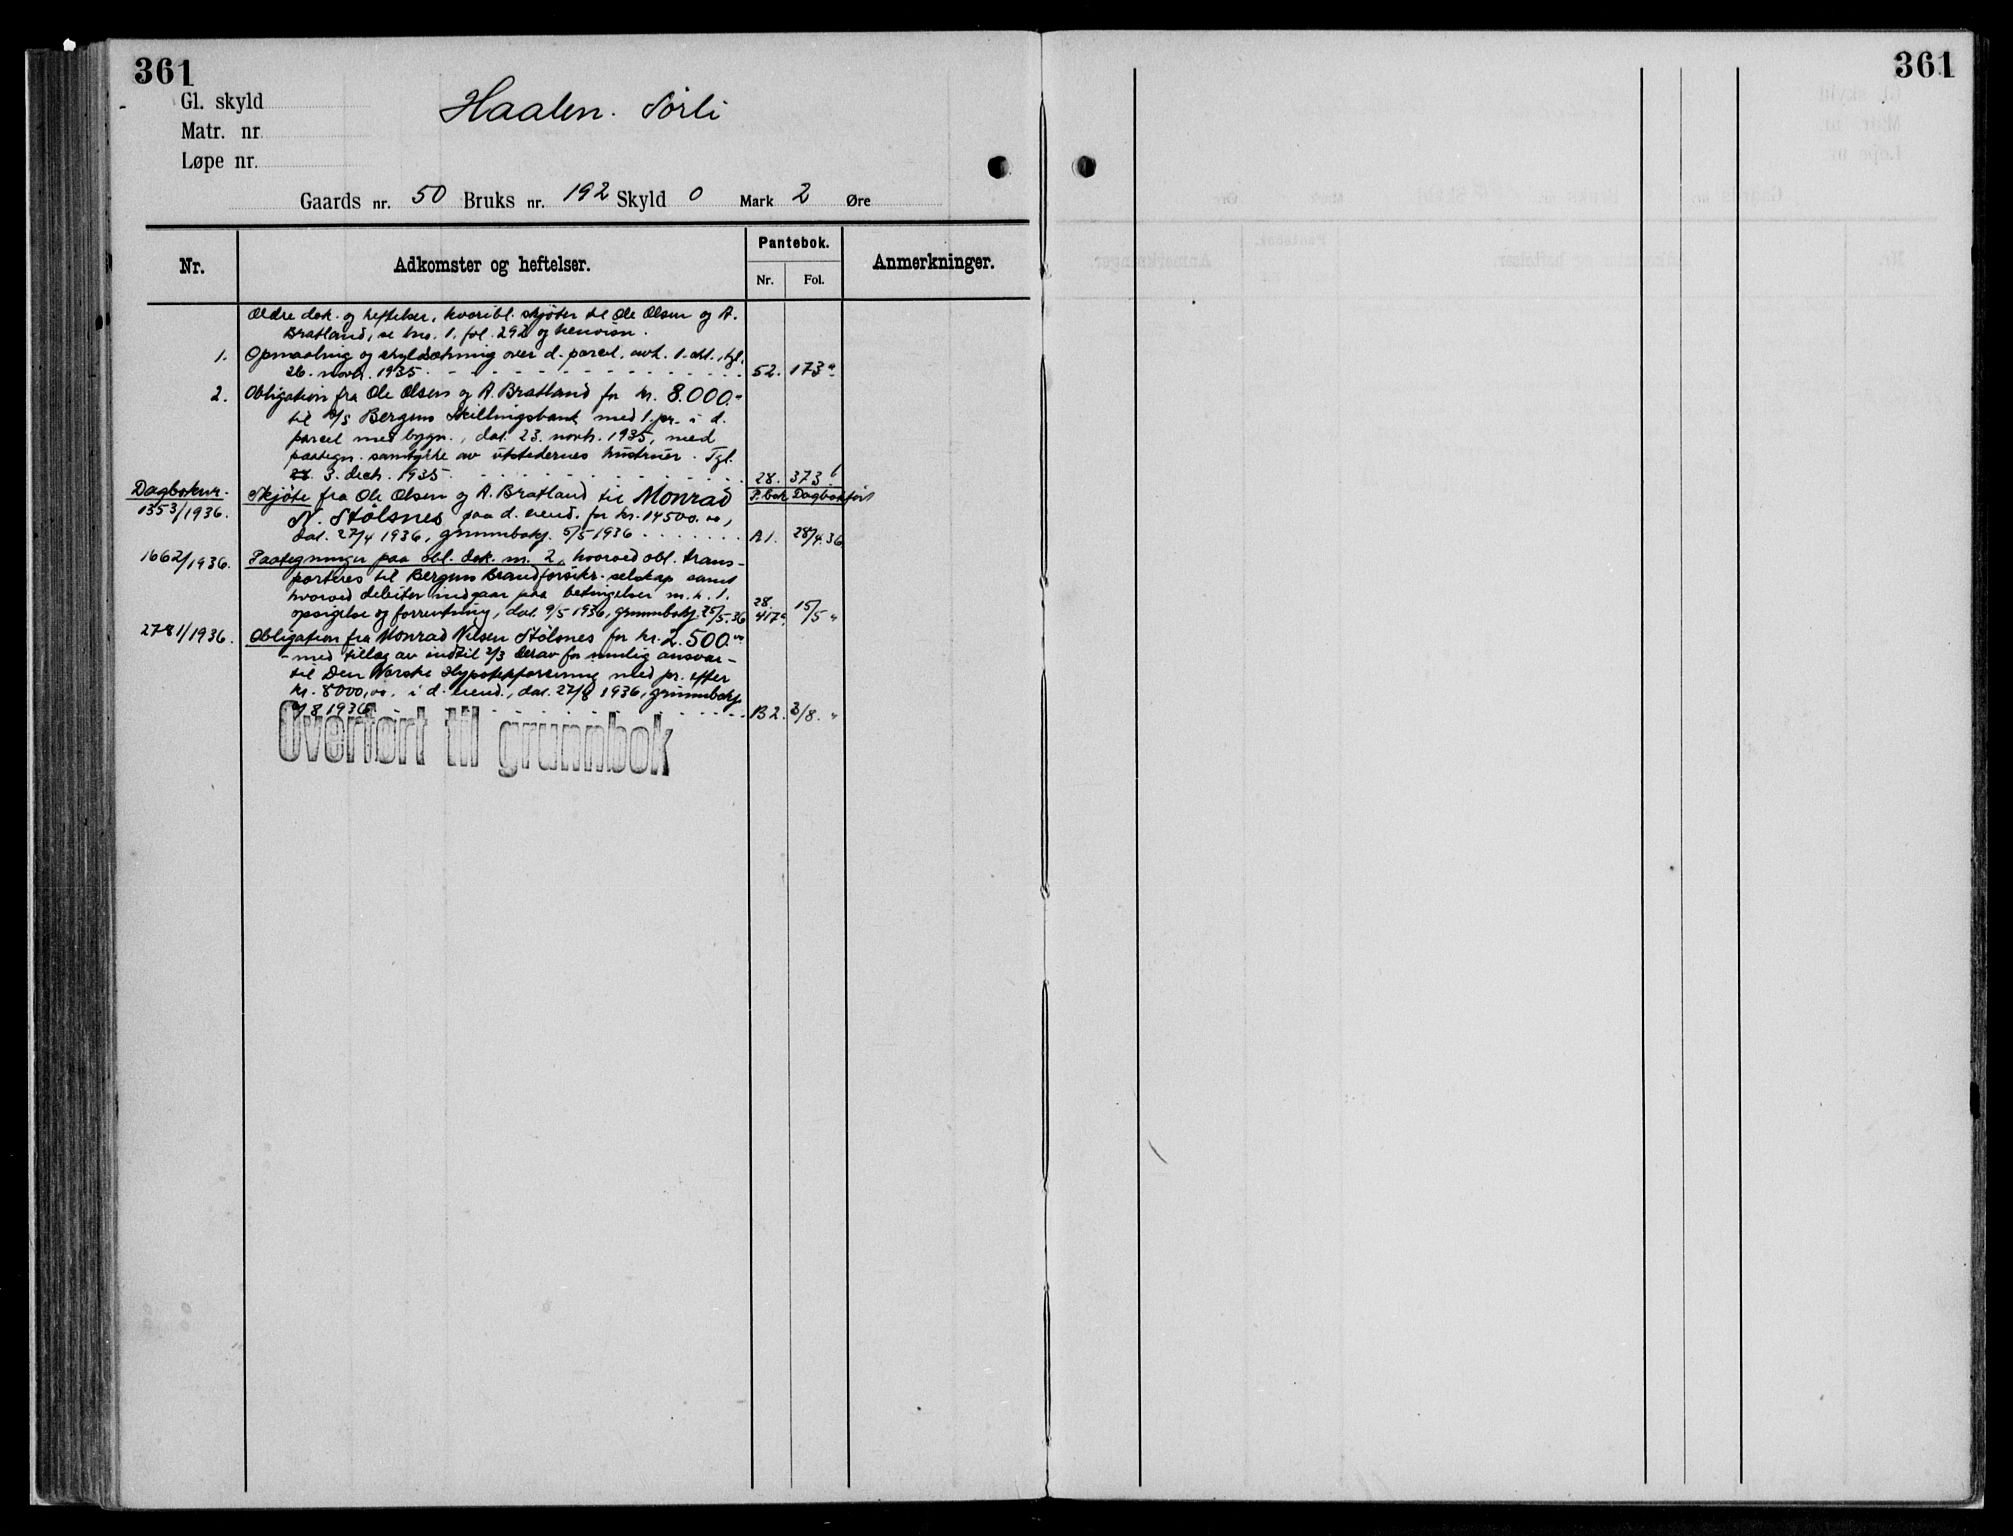 361
361
Gl. skyld
Matr. nr
Løpe nr.
Haalen. Sörli
Gaards nr. 50 Bruks nr. 192 Skyld 0 Mark 2 Øre
Nr.
Adkomster og heftelser.
Pantebok.
Nr.
Fol.
Anmerkninger.
Ældre dok. og heftelser, hvoribl. skjöter til Ole Olsen og A.
Bratland, se bno. 1. fol. 292 og henvisn.
1. Opmaaling og skyldsætning over d. parcel, avh. 1. okt., tgl.
26. novb. 1935. 52. 173a
2. Obligation fra Ole Olsen og A. Bratland for kr. 8.000.-
til A/S Bergens Skillingsbank med 1. pr. i d.
parcel med bygn., dat. 23. novb. 1935, med
paategn. samtykke av utstedernes hustruer. Tgl.
28. 3. decb. 1935. 28. 373b
Dagboknr. Skjöte fra Ole Olsen og A. Bratland til Monrad P.bok Dagbokfört
1353/1936. N. Stölsnes paa d. eiend. for kr. 14500.00,
dat. 27/4 1936, grunnbokf. 5/5 1936 A1. 28/4.36
1662/1936. Paategninger paa obl. dok. nr. 2, hvorved obl. trans-
porteres til Bergens Brandforsikr. selskap samt
hvorved debitor indgaar paa betingelser m. h. t.
opsigelse og forrentning, dat. 9/5 1936, grunnbokf. 25/5.36 28. 417a 15/5 "
2781/1936. Obligation fra Monrad Nilsen Stölsnes for kr. 2.500.00
- med tillæg av indtil 2/3 derav for mulig ansvar -
til Den Norske Hypotekforening med pr. efter
kr. 8000,00. i d. eiend., dat. 27/8 1936, grunnbokf.
8 1936 B2. 3/8. "
Overført til grunnbok